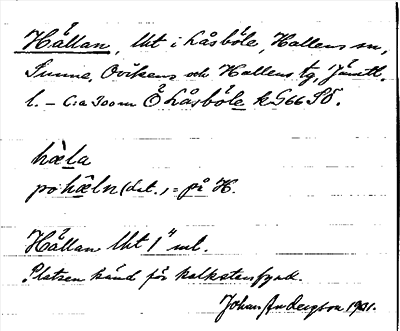 Hållan, lht i Låsböle, Hallens sn,
Sunne, Ovikens och Hallens tg, Jämtl.
l. – C:a 300 m Ö Låsböle k G66 SÖ.
hæla
på hæln (det.) = på H.
Hållan lht 1" ml.
Platsen känd för kalkstensfynd.
Johan Andersson 1931.